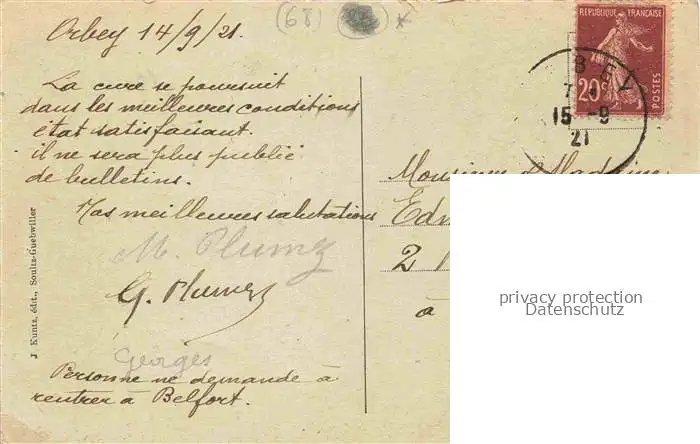 (68)
Orbey 14/9/21.
La cure se poursuit
dans les meilleures conditions
état satisfaisant.
il ne sera plus publié
de bulletins.
Mes meilleures salutations
M. Plumez
G. Plumez
Georges
Personne ne demande à
rentrer à Belfort.
J Kuntz, édit., Soultz-Guebwiller
REPUBLIQUE FRANÇAISE
20c
POSTES
BEY
15 -9
21
Monsieur & Madame
Edm
2
à
privacy protection
Datenschutz